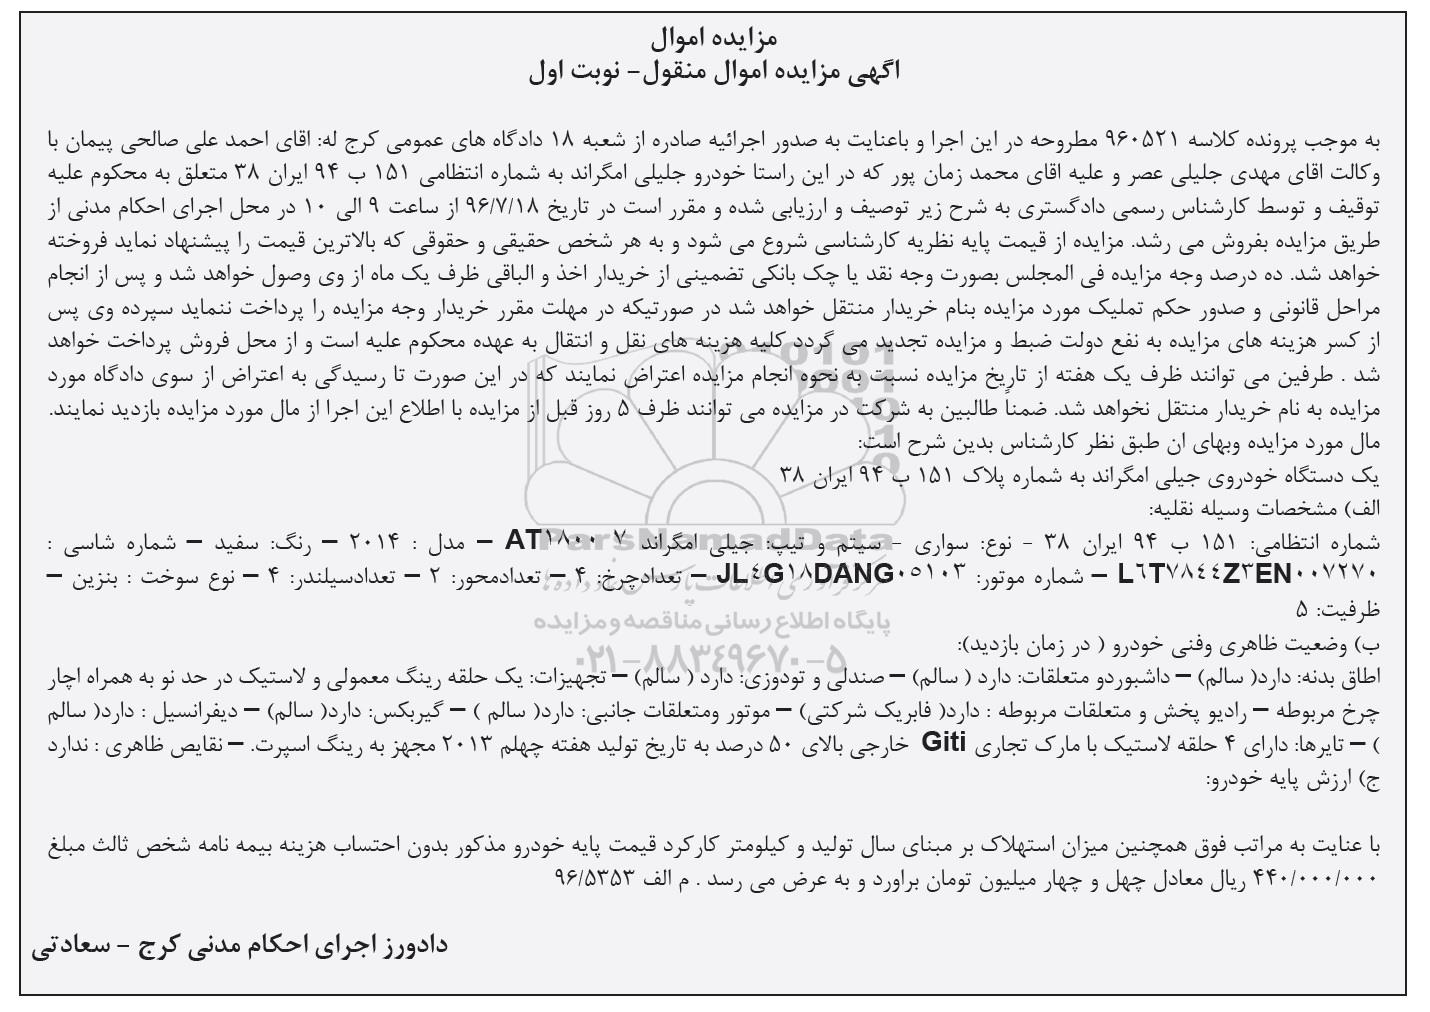 مزایده اموال
اگهی مزایده اموال منقول- نوبت اول
به موجب پرونده کلاسه ۹۶۰۵۲۱ مطروحه در این اجرا و باعنایت به صدور اجرائیه صادره از شعبه ۱۸ دادگاه های عمومی کرج له: اقای احمد علی صالحی پیمان با
وکالت اقای مهدی جلیلی عصر و علیه اقای محمد زمان پور که در این راستا خودرو جلیلی امگراند به شماره انتظامی ۱۵۱ ب ۹۴ ایران ۳۸ متعلق به محکوم علیه
توقیف و توسط کارشناس رسمی دادگستری به شرح زیر توصیف و ارزیابی شده و مقرر است در تاریخ ۹۶/۷/۱۸ از ساعت ۹ الی ۱۰ در محل اجرای احکام مدنی از
طریق مزایده بفروش می رشد. مزایده از قیمت پایه نظریه کارشناسی شروع می شود و به هر شخص حقیقی و حقوقی که بالاترین قیمت را پیشنهاد نماید فروخته
خواهد شد. ده درصد وجه مزایده فی المجلس بصورت وجه نقد یا چک بانکی تضمینی از خریدار اخذ و الباقی ظرف یک ماه از وی وصول خواهد شد و پس از انجام
مراحل قانونی و صدور حکم تملیک مورد مزایده بنام خریدار منتقل خواهد شد در صورتیکه در مهلت مقرر خریدار وجه مزایده را پرداخت ننماید سپرده وی پس
از کسر هزینه های مزایده به نفع دولت ضبط و مزایده تجدید می گردد کلیه هزینه های نقل و انتقال به عهده محکوم علیه است و از محل فروش پرداخت خواهد
شد . طرفین می توانند ظرف یک هفته از تاریخ مزایده نسبت به نحوه انجام مزایده اعتراض نمایند که در این صورت تا رسیدگی به اعتراض از سوی دادگاه مورد
مزایده به نام خریدار منتقل نخواهد شد. ضمناً طالبین به شرکت در مزایده می توانند ظرف ۵ روز قبل از مزایده با اطلاع این اجرا از مال مورد مزایده بازدید نمایند.
مال مورد مزایده وبهای ان طبق نظر کارشناس بدین شرح است:
یک دستگاه خودروی جیلی امگراند به شماره پلاک ۱۵۱ ب ۹۴ ایران ۳۸
الف) مشخصات وسیله نقلیه:
شماره انتظامی: ۱۵۱ ب ۹۴ ایران ۳۸ - نوع: سواری - سیتم و تیپ: جیلی امگراند ۷ AT۱۸۰۰ – مدل : ۲۰۱۴ – رنگ: سفید – شماره شاسی :
L٦T٧٨٤٤Z٣EN٠٠٧٢٧٠ – شماره موتور: JL٤G١٨DANG٠٥١٠٣ – تعدادچرخ: ۴ – تعدادمحور: ۲ – تعدادسیلندر: ۴ – نوع سوخت : بنزین –
ظرفیت: ۵
ب) وضعیت ظاهری وفنی خودرو ( در زمان بازدید):
اطاق بدنه: دارد( سالم) – داشبوردو متعلقات: دارد ( سالم) – صندلی و تودوزی: دارد ( سالم) – تجهیزات: یک حلقه رینگ معمولی و لاستیک در حد نو به همراه اچار
چرخ مربوطه – رادیو پخش و متعلقات مربوطه : دارد( فابریک شرکتی) – موتور ومتعلقات جانبی: دارد( سالم ) – گیربکس: دارد( سالم) – دیفرانسیل : دارد( سالم
) – تایرها: دارای ۴ حلقه لاستیک با مارک تجاری Giti خارجی بالای ۵۰ درصد به تاریخ تولید هفته چهلم ۲۰۱۳ مجهز به رینگ اسپرت. – نقایص ظاهری : ندارد
ج) ارزش پایه خودرو:
با عنایت به مراتب فوق همچنین میزان استهلاک بر مبنای سال تولید و کیلومتر کارکرد قیمت پایه خودرو مذکور بدون احتساب هزینه بیمه نامه شخص ثالث مبلغ
۴۴۰/۰۰۰/۰۰۰ ریال معادل چهل و چهار میلیون تومان براورد و به عرض می رسد . م الف ۹۶/۵۳۵۳
دادورز اجرای احکام مدنی کرج – سعادتی
ParsNamadData
پایگاه اطلاع رسانی مناقصه و مزایده
۰۲۱-۸۸۳۴۹۶۷۰-۵